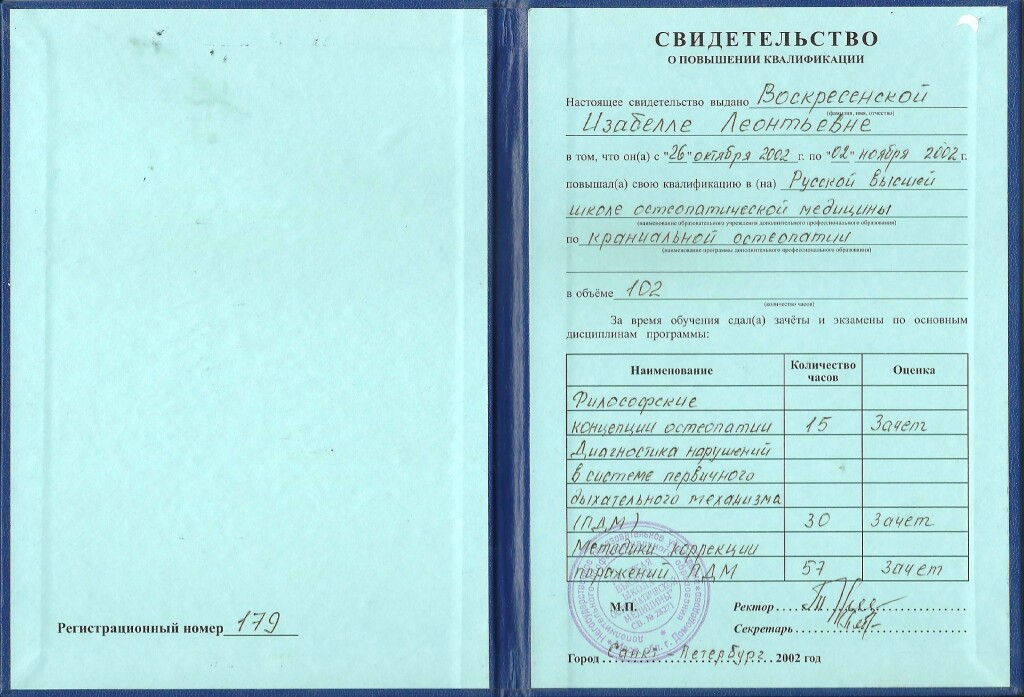 Регистрационный номер 179
СВИДЕТЕЛЬСТВО
О ПОВЫШЕНИИ КВАЛИФИКАЦИИ
Настоящее свидетельство выдано Воскресенской
(фамилия, имя, отчество)
Изабелле Леонтьевне
в том, что он(а) с "26" октября 2002 г. по "02" ноября 2002 г.
повышал(а) свою квалификацию в (на) Русской высшей
школе остеопатической медицины
(наименование образовательного учреждения дополнительного профессионального образования)
по краниальной остеопатии
(наименование программы дополнительного профессионального образования)
в объёме 102
(количество часов)
За время обучения сдал(а) зачёты и экзамены по основным
дисциплинам программы:
Наименование Количество часов Оценка
Философские
концепции остеопатии 15 Зачет
Диагностика нарушений
в системе первичного
дыхательного механизма
(ПДМ) 30 Зачет
Методики коррекции
поражений ПДМ 57 Зачет
М.П. Ректор
Секретарь
Город Санкт-Петербург 2002 год